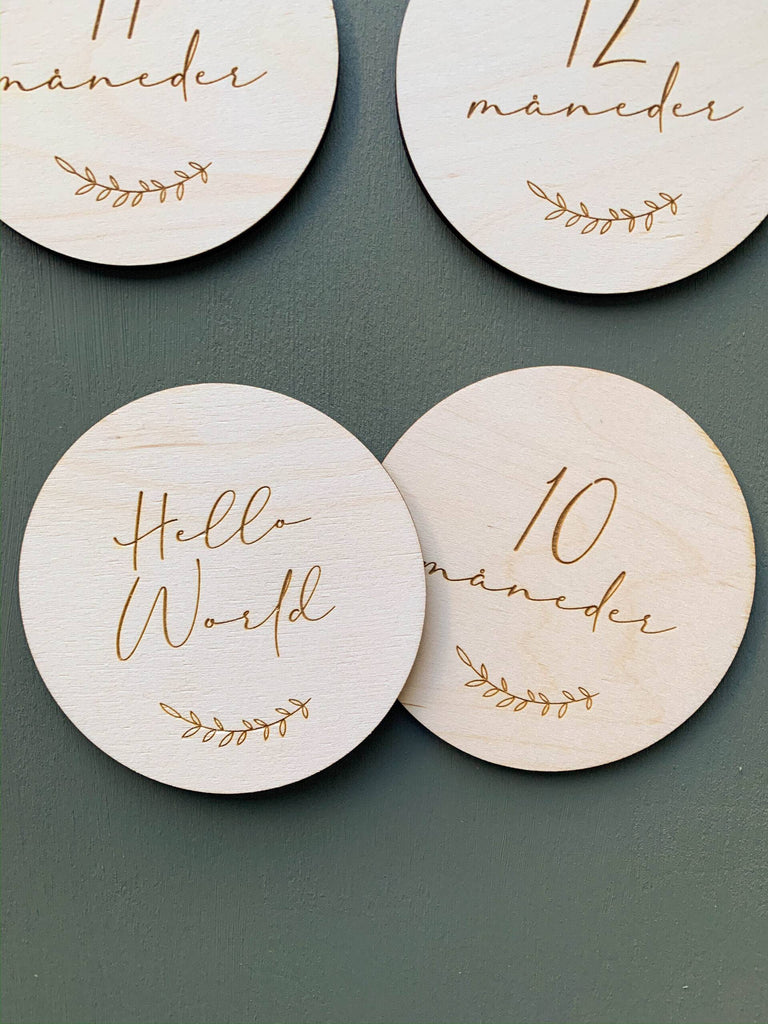 11
måneder
12
måneder
Hello
World
10
måneder